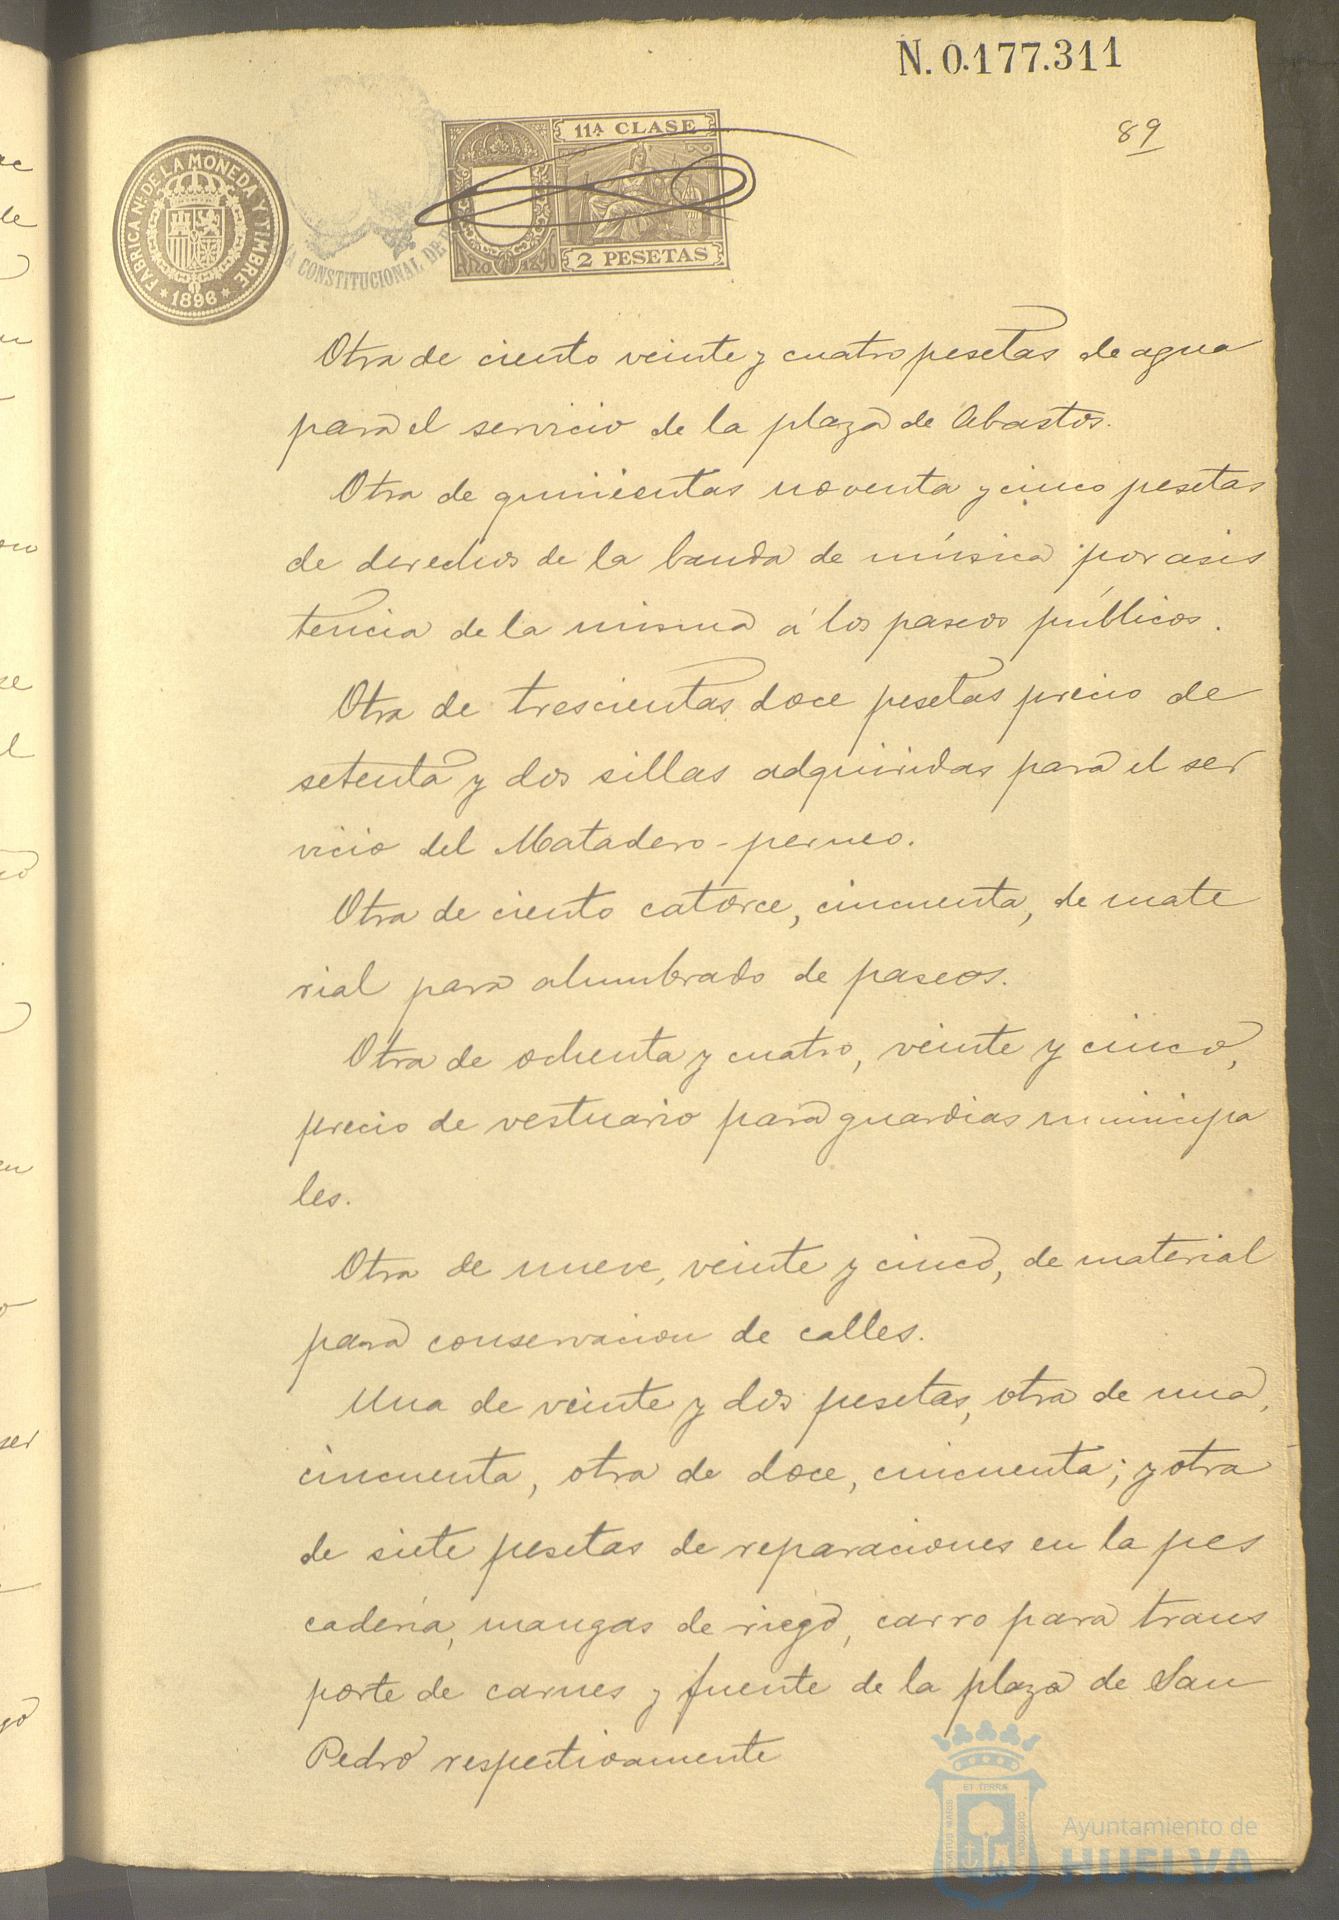 N. 0.177.311
89
FABRICA Nl. DE LA MONEDA Y TIMBRE
* 1896 *
CONSTITUCIONAL DE
11ª CLASE
2 PESETAS
Otra de ciento veinte y cuatro pesetas de agua
para el servicio de la plaza de Abastos.
Otra de quinientas noventa y cinco pesetas
de derechos de la banda de música por asis
tencia de la misma á los paseos públicos.
Otra de trescientas doce pesetas precio de
setenta y dos sillas adquiridas para el ser
vicio del Matadero-perneo.
Otra de ciento catorce, cincuenta, de mate
rial para alumbrado de paseos.
Otra de ochenta y cuatro, veinte y cinco,
precio de vestuario para guardias municipa
les.
Otra de nueve, veinte y cinco, de material
para conservacion de calles.
Una de veinte y dos pesetas, otra de una,
cincuenta, otra de doce, cincuenta; y otra
de siete pesetas de reparaciones en la pes
cadería, mangas de riego, carro para trans
porte de carnes y fuente de la plaza de San
Pedro respectivamente
Ayuntamiento de
HUELVA